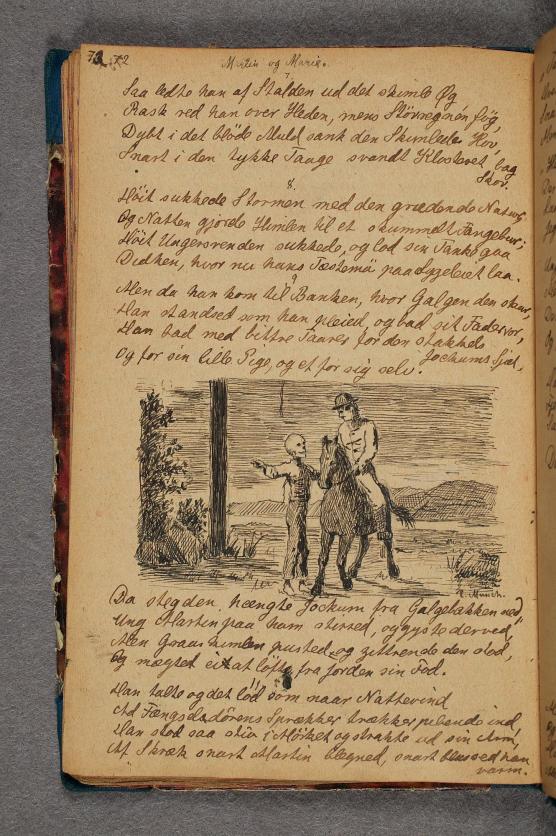 72
Martin og Marie.
7.
Saa ledte han af Stalden ud det skimle Øg
Rask red han over Heden, mens Störregnen føg,
Dybt i det bløde Muld sank den Skimlede Hov,
Snart i den tykke Taage svandt Klosteret bag
Skov.
8.
Höit sukkede Stormen med den grædende Natur,
Og Natten gjorde Himlen til et skummelt Fangebur;
Höit Ungersvenden sukkede, og lod sin Tanke gaa
Didhen, hvor nu hans Festemø paa Sygeleiet laa.
9
Men da han kom til Banken, hvor Galgen den staar,
Han standsed som han pleied, og bad sit Fadervor,
Han bad med bittre Taarer for den stakkels
Jockums Sjæl,
Og for sin lille Pige, og et for sig selv.
E. Munch.
Da steg den hængte Jockum fra Galgebakken ned,
Ung Martin paa ham stirred, og gyste derved,
Men Graaskimlen pusted og zittrende den stod,
Og mægted ei at löfte fra Jorden sin Fod.
11
Han talte og det lød som naar Nattevind
Ad Fængselsdörens Sprækker trækker pibende ind,
Han stod saa stiv i Mörket og strakte ud sin Arm,
Af Skræk snart Martin blegned, snart blussed han
varm.